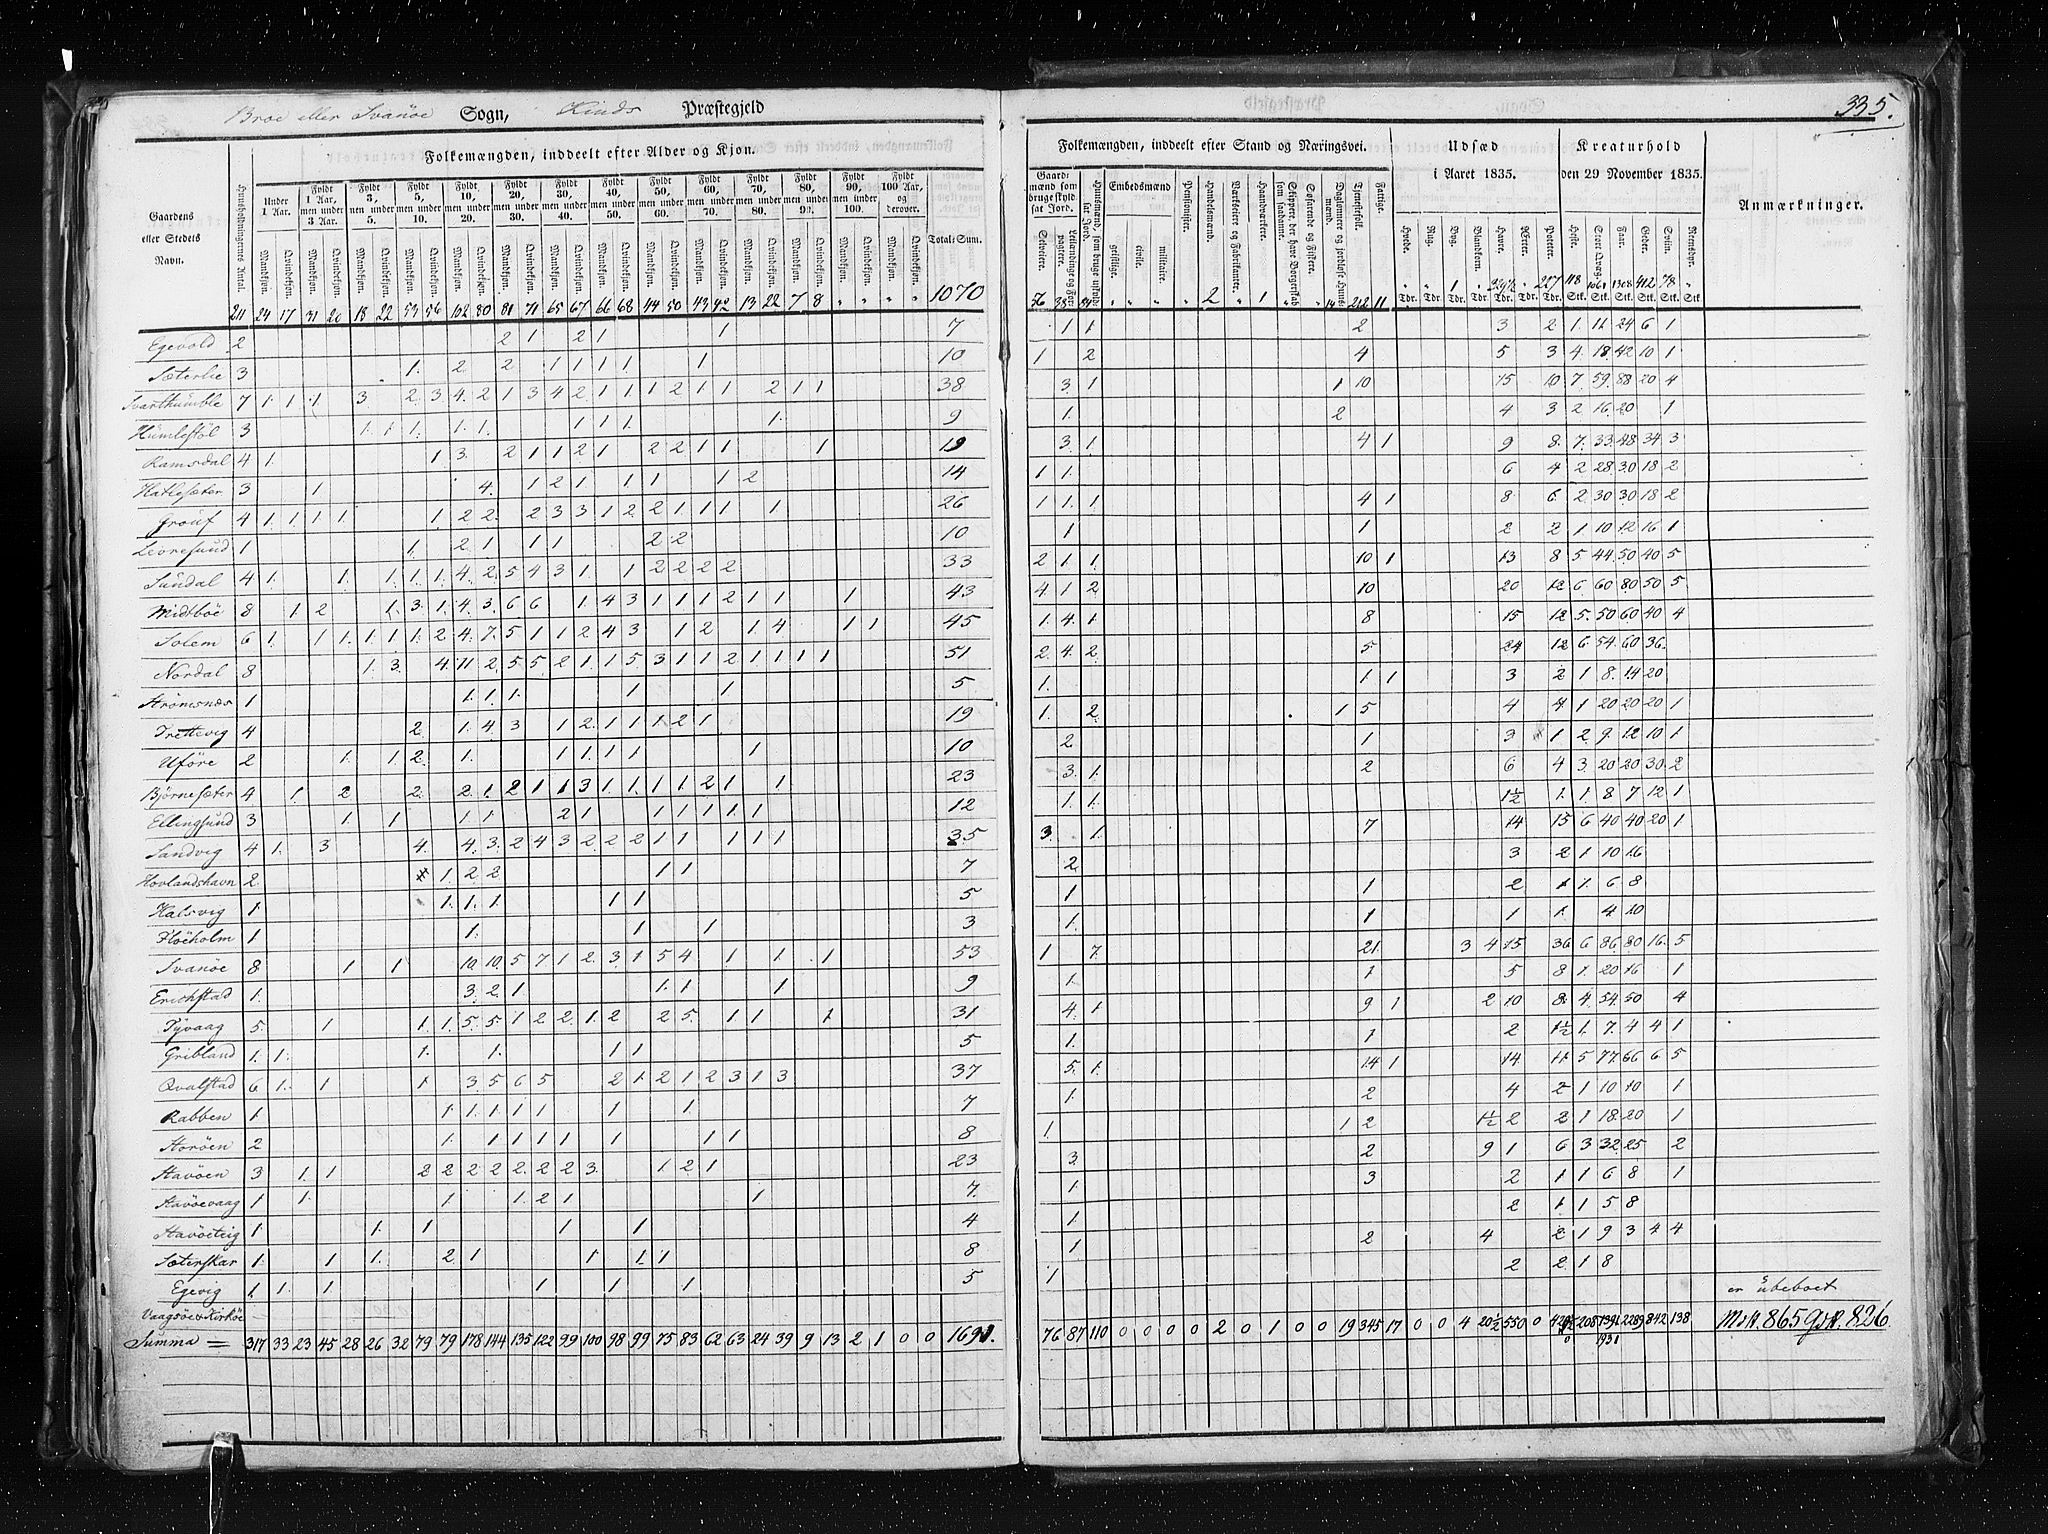 335.
Broe eller Svanöe Sogn, Kinds Præstegjeld
Folkemængden, inddeelt efter Alder og Kjøn.
Folkemængden, inddeelt efter Stand og Næringsvei.
Udsæd i Aaret 1835.
Kreaturhold den 29 November 1835.
Anmærkninger.
Gaardens eller Stedets Navn.
Huusholdningernes Antal.
Under 1 Aar.
Fyldt 1 Aar, men under 3 Aar.
Fyldt 3, men under 5.
Fyldt 5, men under 10.
Fyldt 10, men under 20.
Fyldt 20, men under 30.
Fyldt 30, men under 40.
Fyldt 40, men under 50.
Fyldt 50, men under 60.
Fyldt 60, men under 70.
Fyldt 70, men under 80.
Fyldt 80, men under 90.
Fyldt 90, men under 100.
Fyldt 100 Aar, og derover.
Total-Sum.
Mandkjøn. Qvindekjøn.
Gaardmænd som bruge skyldsat Jord.
Selveiere.
Leilændinge og Forpagtere.
Huusmænd, som bruge uskyldsat Jord.
Embedsmænd
geistlige. civile. militaire.
Pensionister.
Handelsmænd.
Værkeiere og Fabrikanter.
Haandværkere.
Skippere, der have Borgerskab som saadanne.
Søfarende og Fiskere.
Daglønnere og jordløse Huusmænd.
Tjenestefolk.
Fattige.
Hvede. Rug. Byg. Blandkorn. Havre. Ærter. Poteter.
Heste. Stort Qvæg. Faar. Geder. Sviin. Rensdyr.
211 24 17 31 20 18 22 53 56 102 80 81 71 65 67 66 68 44 50 43 42 13 22 7 8 " " " " 1070
Egevold 2 2 1 2 1 1 7 1 1 2 3 2 1 11 24 6 1
Sæterlie 3 1 2 2 1 1 1 1 1 10 1 2 4 5 3 4 18 42 10 1
Svarthumble 7 1 1 1 3 2 3 4 2 1 3 4 2 1 1 1 2 1 1 2 1 1 38 3 1 1 10 15 10 7 59 88 20 4
Humlestöl 3 1 1 1 1 1 1 1 1 1 9 1 2 4 3 2 16 20 1
Ramsdal 4 1 1 3 2 1 1 2 1 2 2 1 1 1 19 3 1 4 1 9 8 7 33 48 34 3
Hatlesæter 3 1 4 1 2 1 1 1 1 2 14 1 1 6 4 2 28 30 18 2
Grouf 4 1 1 1 1 1 2 2 2 3 3 1 2 2 1 1 1 1 26 1 1 1 4 1 8 6 2 30 30 18 2
Levresund 1 1 2 1 1 1 2 2 10 1 1 2 2 1 10 12 16 1
Sundal 4 1 1 1 1 1 4 2 5 4 3 1 1 2 2 2 2 33 2 1 1 10 1 13 8 5 44 50 40 5
Midtböe 8 1 2 1 3 1 4 3 6 6 1 4 3 1 1 1 2 1 1 1 43 4 1 2 10 20 12 6 60 80 50 5
Solem 6 1 1 1 1 1 1 2 4 7 5 1 1 2 4 3 1 2 1 4 1 1 45 1 4 1 8 15 12 5 50 60 40 4
Nordal 8 1 3 4 11 2 5 5 2 1 1 5 3 1 1 2 1 1 1 1 51 2 4 2 5 24 12 6 54 60 36
Strömsnæs 1 1 1 1 1 1 5 1 1 1 3 2 1 8 14 20
Trettevig 4 2 1 4 3 1 2 1 1 1 2 1 19 1 2 1 5 4 4 1 20 20 20 1
Uföre 2 1 1 2 1 1 1 1 1 1 10 2 1 3 1 2 9 12 10 1
Björnesæter 4 1 2 2 2 1 2 1 1 3 1 1 1 1 2 1 1 23 3 1 2 6 4 3 20 20 30 2
Ellingsund 3 1 1 1 1 2 1 1 1 1 1 1 12 1 1 1½ 1 1 8 7 12 1
Sandvig 4 1 3 4 4 3 2 4 3 2 2 2 1 1 1 1 1 35 3 1 7 14 15 6 40 40 20 1
Hovlandshavn 2 1 2 2 1 1 7 2 3 2 1 10 16
Kalsvig 1 1 1 1 1 1 5 1 1 2 1 1 6 8
Flöeholm 1 1 1 1 3 1 1 1 1 4 10
Svanöe 8 1 1 10 10 5 7 1 2 3 1 5 4 1 1 1 53 1 7 21 3 4 15 36 6 86 80 16 5
Erichstad 1 3 2 1 1 1 1 9 1 1 5 8 1 20 16 1
Tyvaag 5 1 1 1 5 5 1 2 2 1 2 2 5 1 1 1 31 4 1 9 1 2 10 8 4 54 50 4
Gribland 1 1 1 1 1 1 5 1 1 2 1½ 1 7 4 4 1
Qvalstad 6 1 1 1 3 5 6 5 2 1 2 1 2 3 1 3 37 5 1 14 1 14 11 5 77 66 6 5
Rabben 1 1 1 1 1 1 1 1 7 1 2 4 2 1 10 10 1
Horöen 2 1 1 1 1 1 1 1 1 8 1 1 2 1½ 2 2 1 18 20 1
Stavöen 3 1 1 2 2 2 2 2 2 2 3 1 2 1 23 3 2 9 1 6 3 32 25 2
Stavöevaag 1 1 1 1 2 1 1 7 1 3 2 1 1 6 8 1
Stavöeteig 1 1 1 1 1 4 1 2 1 1 5 8
Sæterskar 1 1 1 2 1 1 1 1 8 1 2 4 2 1 9 3 4 4
Egevig 1 1 1 1 1 1 5 1 2 2 1 8
Vaagsöe & Kirköe er ubeboet
Summa = 317 33 23 45 28 26 32 79 79 178 144 135 122 99 100 98 99 75 83 62 63 24 39 9 13 2 1 0 0 1691. 76 87 110 0 0 0 0 2 0 1 0 0 19 345 17 0 0 4 20½ 550 0 208 1391 2289 842 138 Mdk. 865 Qvk. 826
1931